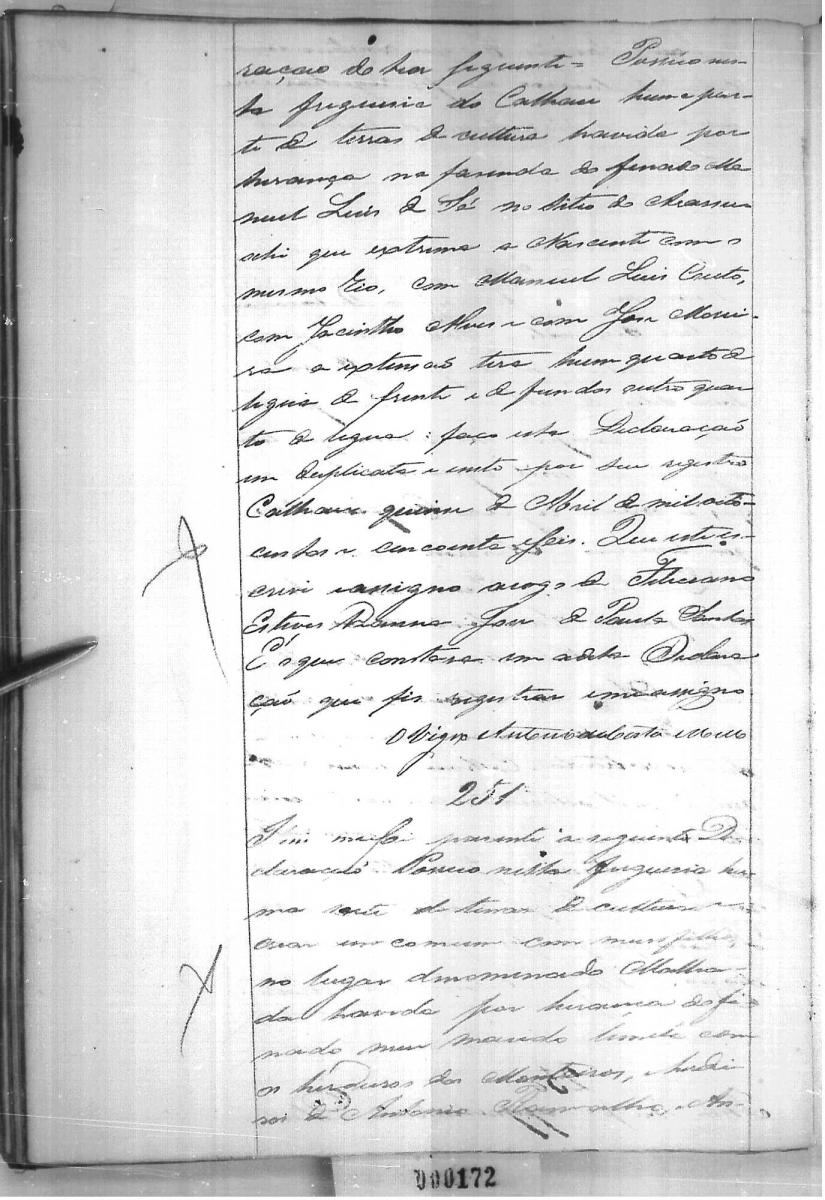 ração do teor seguinte = Possuo nes-
ta freguesia do Calhau huma par-
te de terras de cultura havida por
herança na fazenda do finado Ma
nuel Luis de Sá no Sitio do Arassu
ahi que extrema a Nascente com o
mesmo Rio, com Manuel Luis Couto,
com Jacintho Alves e com José Morei-
ra a extensaõ tera hum quarto de
legua de frente e de fundos outro quar
to de legua: faço esta Declaraçaõ
em duplicata e emto por seu registro
Calhau quinse de Abril de mil oito-
centos e cincoenta e seis. Que este es-
crevi e assigno a rogo de Feliciano
Esteves Vianna José de Paula Santos
É o que constava em a dita Declara
ção que fis registrar e me assigno.
O Vigrº Antonio da Costa Mello
251
I in me foi presente a seguinte De
claraçaõ Possuo nesta freguesia hu
ma sorte de terras de cultura e
criar em comum com meus filhos,
no lugar denominado Malha-
da havida por herança do fi
nado meu marido limita com
os herdeiros dos Monteiros, herdei-
ros de Antonio Ramalho, An-
000172